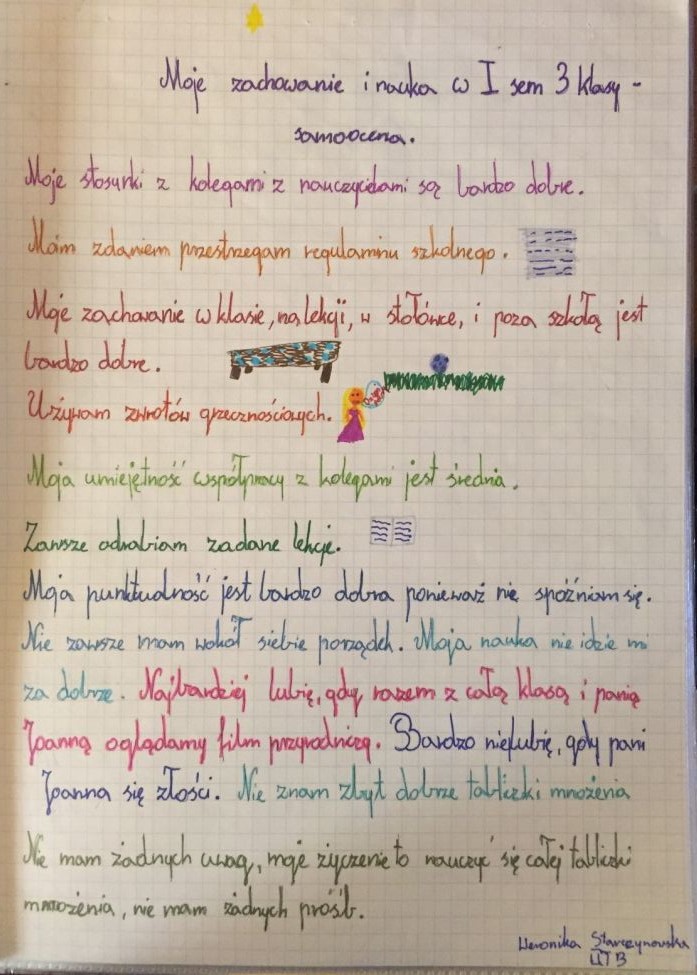 Moje zachowanie i nauka w I sem 3 klasy -
samoocena.
Moje stosunki z kolegami z nauczycielami są bardzo dobre.
Moim zdaniem przestrzegam regulaminu szkolnego.
Moje zachowanie w klasie, na lekcji, w stołówce, i poza szkołą jest
bardzo dobre.
Używam zwrotów grzecznościowych.
Moja umiejętność współpracy z kolegami jest średnia.
Zawsze odrabiam zadane lekcje.
Moja punktualność jest bardzo dobra ponieważ nie spóźniam się.
Nie zawsze mam wokół siebie porządek. Moja nauka nie idzie mi
za dobrze. Najbardziej lubię, gdy razem z całą klasą i panią
Joanną oglądamy film przyrodniczą. Bardzo nielubię, gdy pani
Joanna się złości. Nie znam zbyt dobrze tabliczki mnożenia
Nie mam żadnych uwag, moje życzenie to nauczyć się całej tabliczki
mnożenia, nie mam żadnych próśb.
Weronika Starczynowska